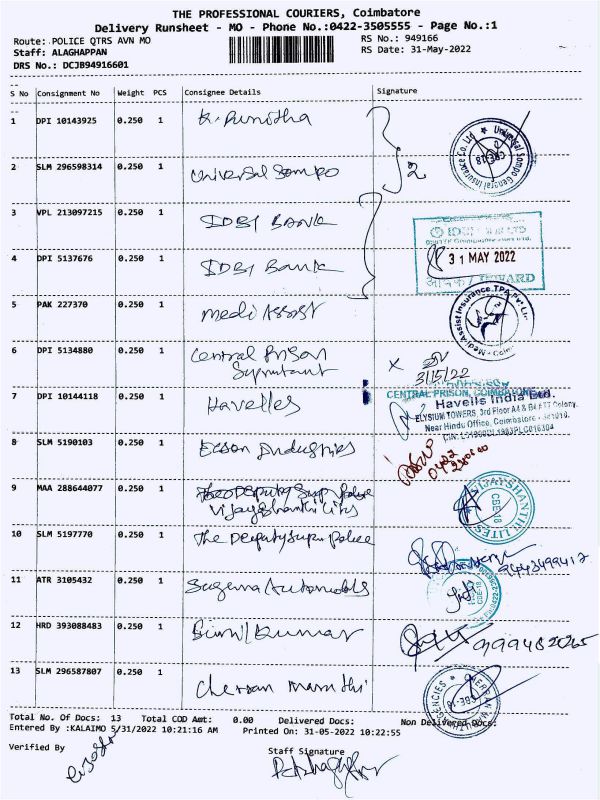 THE PROFESSIONAL COURIERS, Coimbatore
Delivery Runsheet - MO - Phone No.:0422-3505555 - Page No.:1
Route: POLICE QTRS AVN MO
RS No.: 949166
Staff: ALAGHAPPAN
RS Date: 31-May-2022
DRS No.: DCJB94916601
S No Consignment No Weight PCS Consignee Details Signature
1 DPI 10143925 0.250 1 K. Punitha
2 SLM 296598314 0.250 1 Universal Sompo
2
Universal Sompo General Insurance Co. Ltd
CBE-18
3 VPL 213097215 0.250 1 IDBI BANK
4 DPI 5137676 0.250 1 IDBI Bank
31 MAY 2022
5 PAK 227370 0.250 1 Medi Assist
Medi Assist Insurance TPA Pvt Ltd
6 DPI 5134880 0.250 1 Central Prison
3/15/22
CENTRAL PRISON, COIMBATORE
7 DPI 10144118 0.250 1 Havelles
Havells India Ltd.
ELYSIUM TOWERS, 3rd Floor
Near Hindu Office, Coimbatore
8 SLM 5190103 0.250 1 Industries
0422
9 MAA 288644077 0.250 1
Vijayshanthi Lites
VIJAYSHANTHI LITES
CBE-18
10 SLM 5197770 0.250 1 The Deputy Super Police
11 ATR 3105432 0.250 1 Suguna Automobils
CBE-18
12 HRD 393088483 0.250 1 Sunil Kumar
13 SLM 296587807 0.250 1 Cherran Maruthi
CBE-18
AGENCIES
Total No. Of Docs: 13 Total COD Amt: 0.00 Delivered Docs: Non Delivered Docs:
Entered By :KALAIMO 5/31/2022 10:21:16 AM Printed On: 31-05-2022 10:22:55
Verified By
Staff Signature